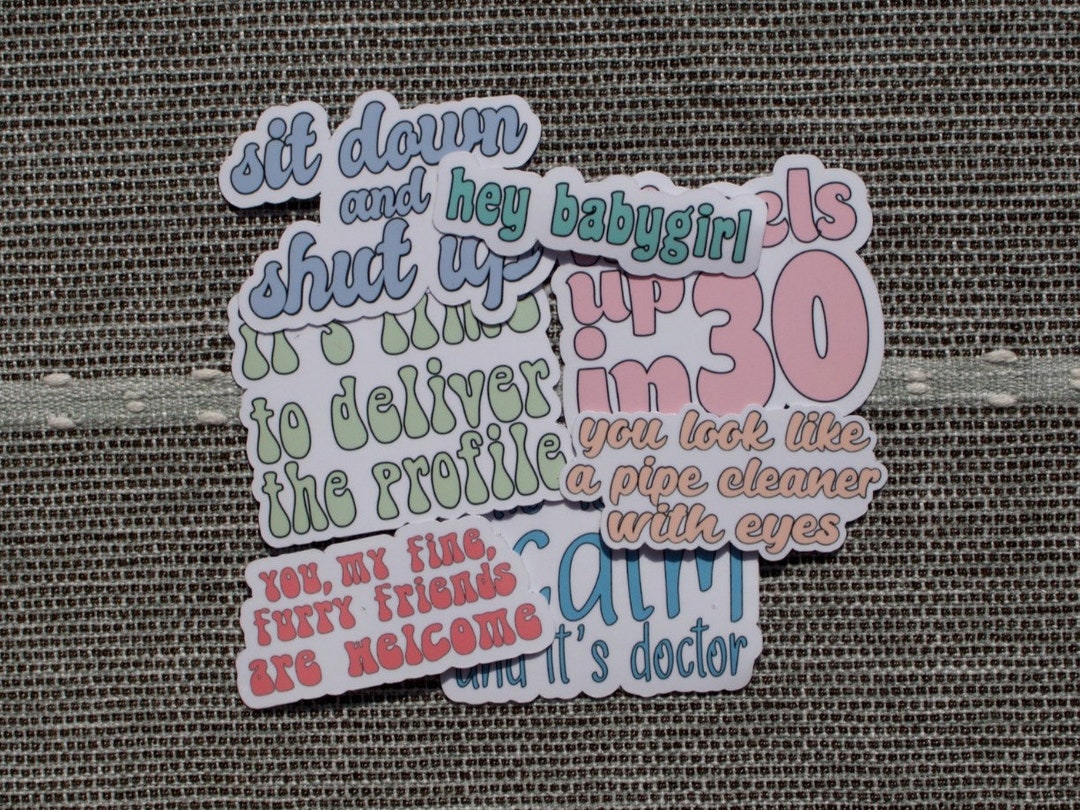 sit down
and
shut up
hey babygirl
els
up
in 30
it's time
to deliver
the profile
you look like
a pipe cleaner
with eyes
you, my fine,
furry friends
are welcome
calm
and it's doctor